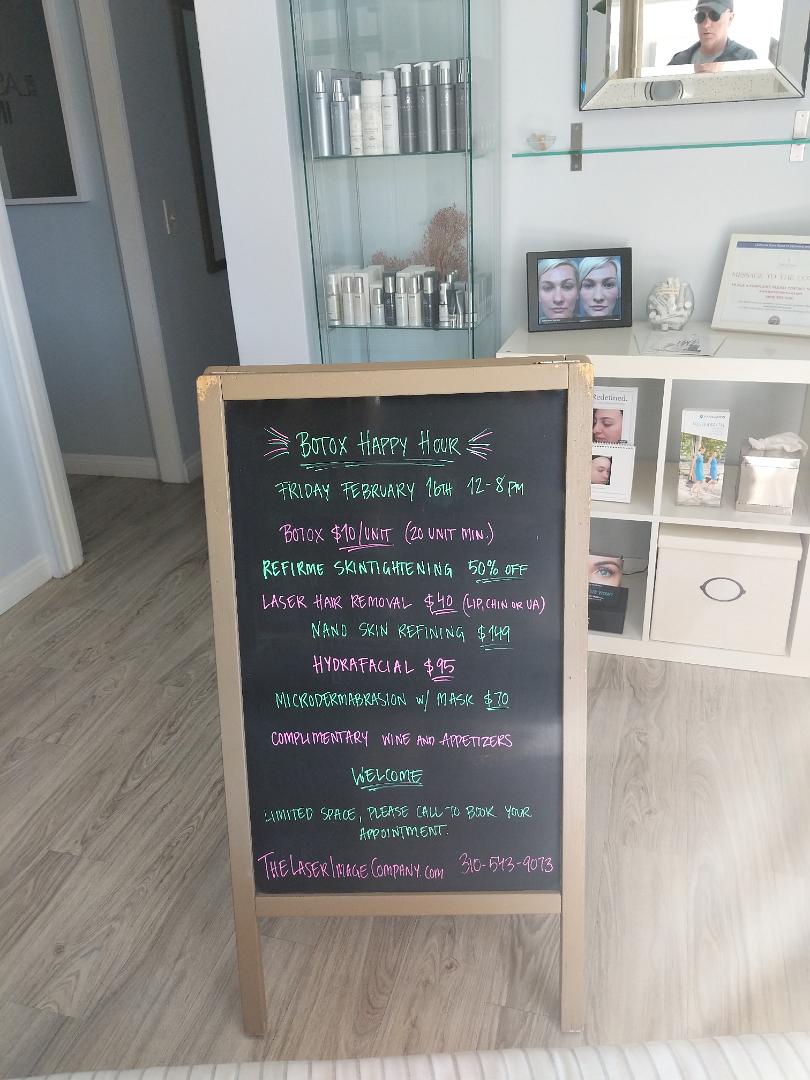 Redefined.
MESSAGE TO THE
BOTOX HAPPY HOUR
FRIDAY FEBRUARY 16TH 12-8 PM
BOTOX $10/UNIT (20 UNIT MIN.)
REFIRME SKINTIGHTENING 50% OFF
LASER HAIR REMOVAL $40 (LIP, CHIN OR UA)
NANO SKIN REFINING $149
HYDRAFACIAL $95
MICRODERMABRASION W/ MASK $70
COMPLIMENTARY WINE AND APPETIZERS
WELCOME
LIMITED SPACE, PLEASE CALL TO BOOK YOUR
APPOINTMENT.
THELASERIMAGECOMPANY.COM 310-543-9073